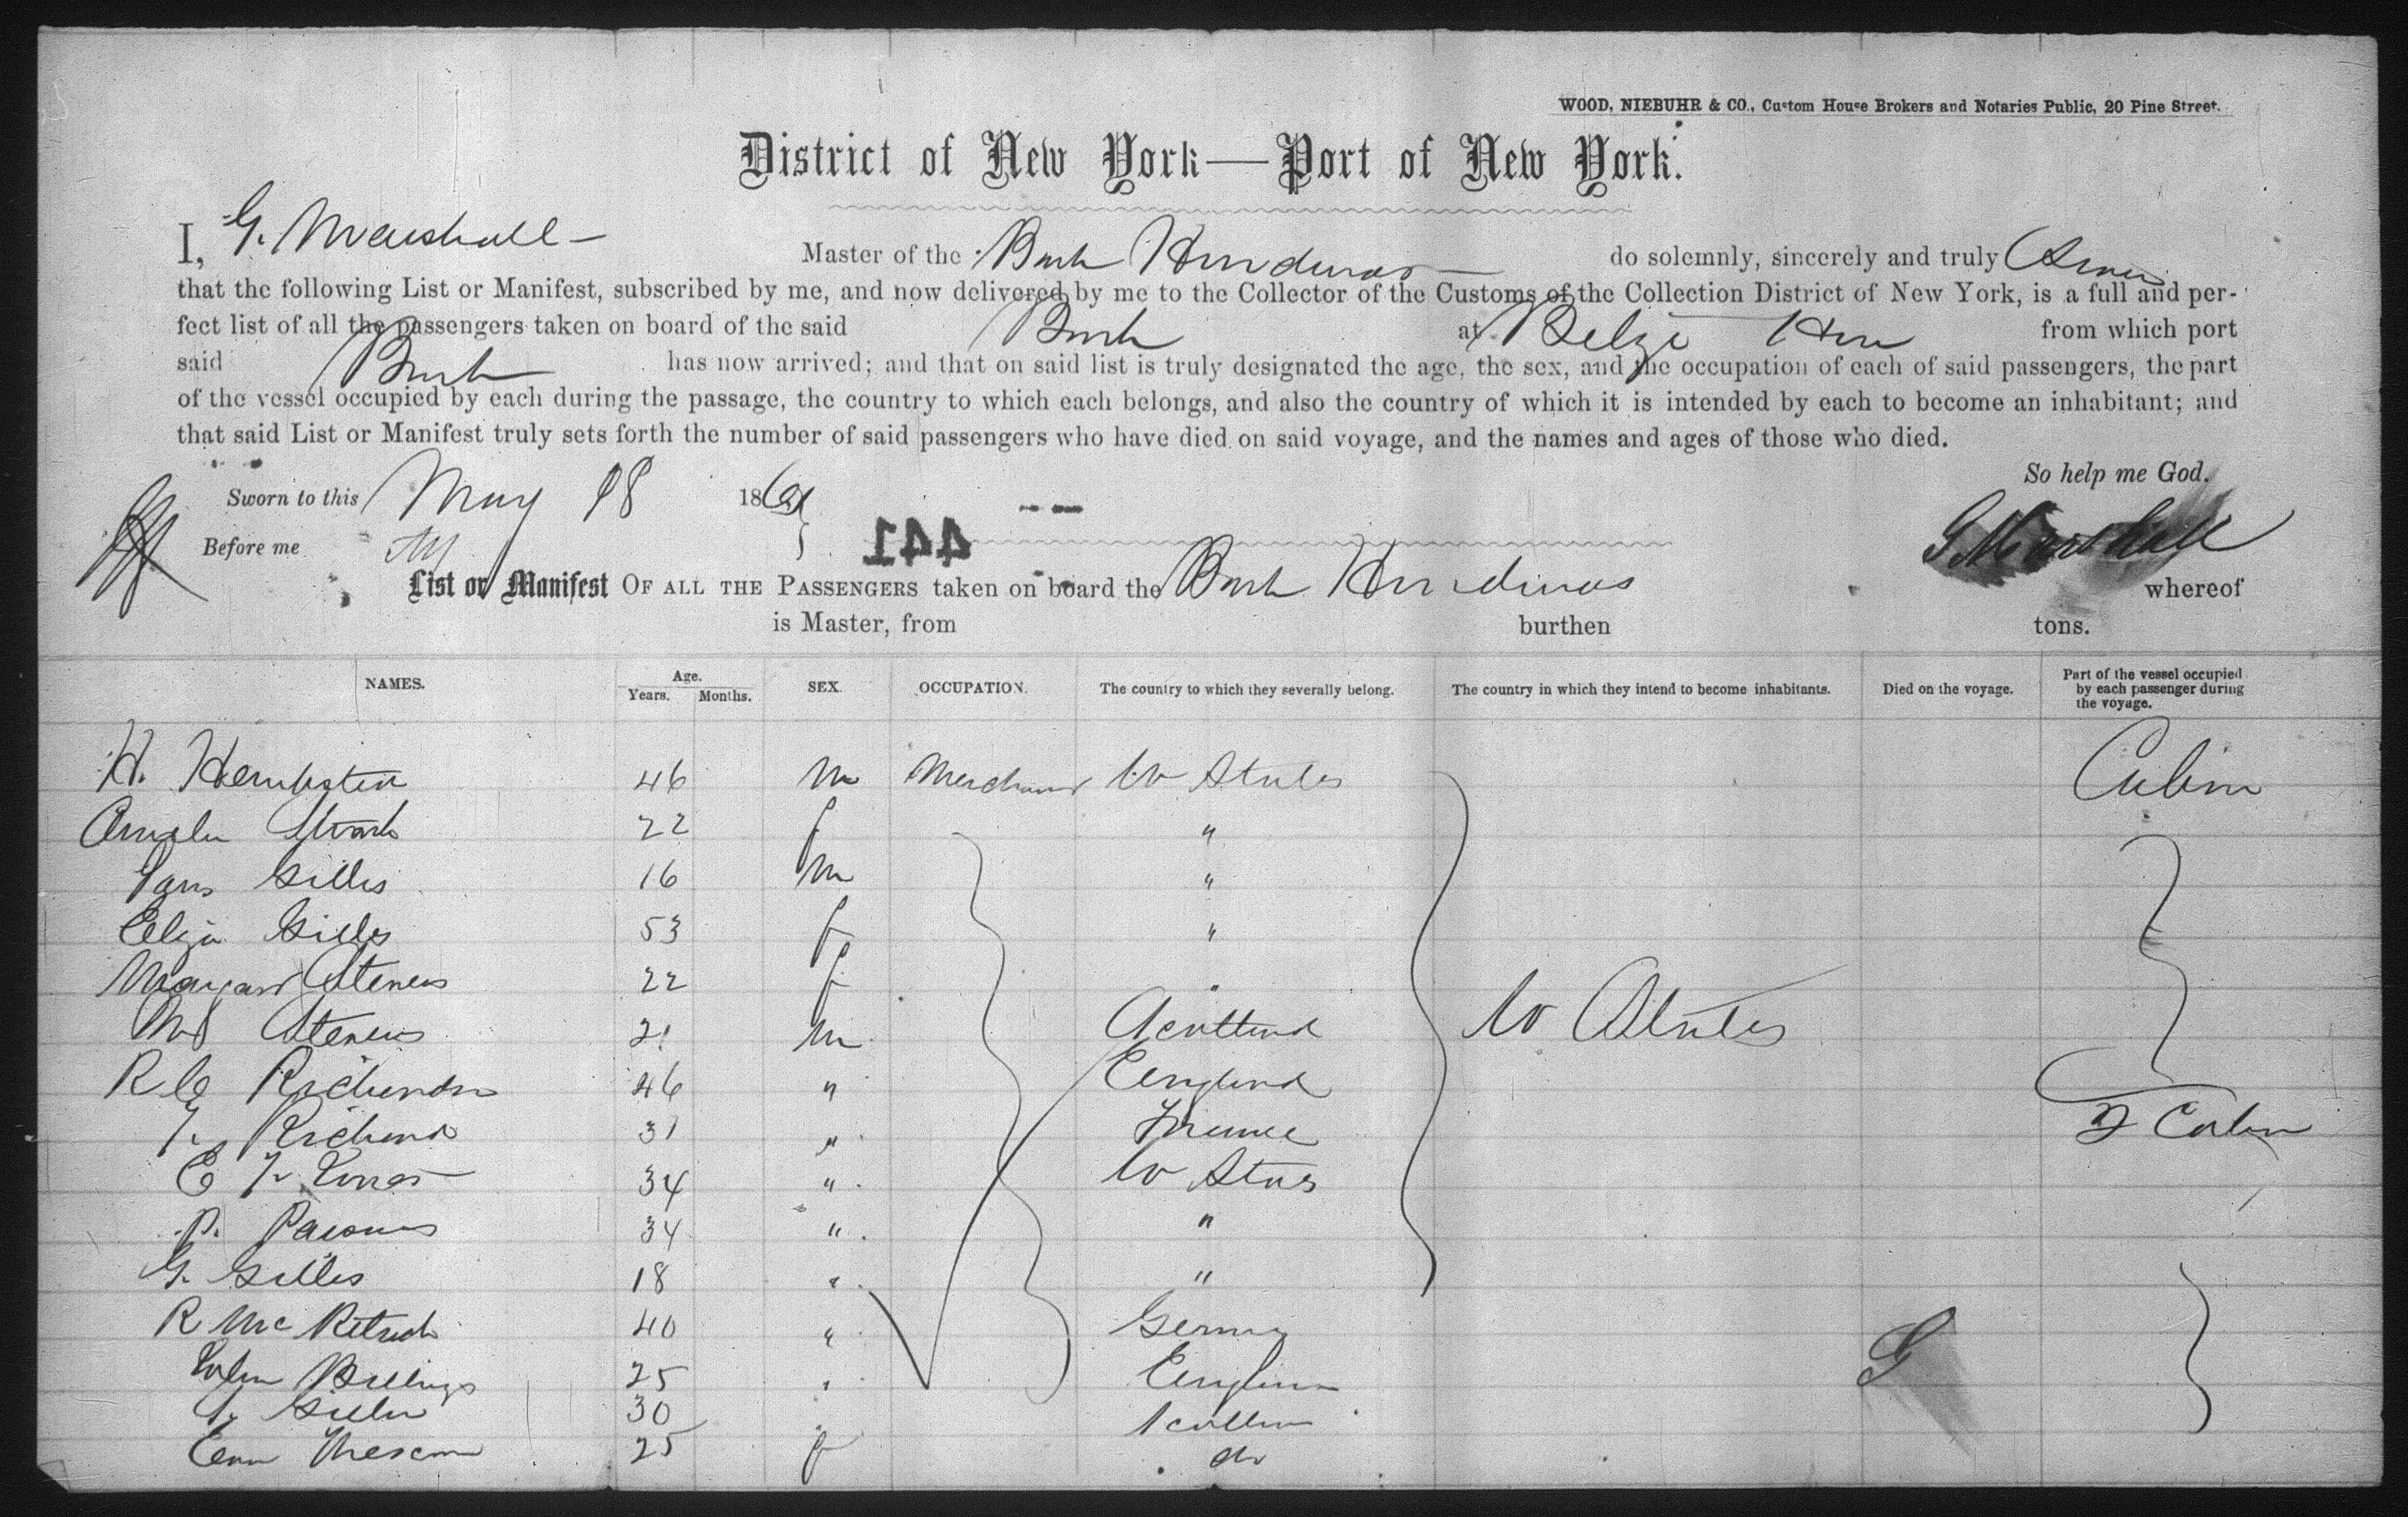 WOOD, NIEBUHR & CO., Custom House Brokers and Notaries Public, 20 Pine Street.
District of New York—Port of New York.
I, G. Marshall — Master of the Bark Honduras — do solemnly, sincerely and truly Swear
that the following List or Manifest, subscribed by me, and now delivered by me to the Collector of the Customs of the Collection District of New York, is a full and per-
fect list of all the passengers taken on board of the said Bark at Belize Hon from which port
said Bark has now arrived; and that on said list is truly designated the age, the sex, and the occupation of each of said passengers, the part
of the vessel occupied by each during the passage, the country to which each belongs, and also the country of which it is intended by each to become an inhabitant; and
that said List or Manifest truly sets forth the number of said passengers who have died on said voyage, and the names and ages of those who died.
So help me God.
Sworn to this May 18 186
Before me
441
G Marshall
List or Manifest OF ALL THE PASSENGERS taken on board the Bark Honduras whereof
is Master, from burthen tons.
NAMES. Age. Years. Months. SEX. OCCUPATION. The country to which they severally belong. The country in which they intend to become inhabitants. Died on the voyage. Part of the vessel occupied by each passenger during the voyage.
H. Hempsted 46 m Merchant U States Cabin
Amelia 22 f "
Gillis 16 m "
Eliza Gillis 53 f "
Margart Stevens 22 f "
Stevens 21 m Scotland U States
R C Richardson 46 " England
Richard 31 " France 2 Cabin
E 34 " U Stas
P. Parsons 34 " "
G. Gillis 18 " "
R Mc 40 " Germany
John Billings 25 " England
30 Scotland
25 f do